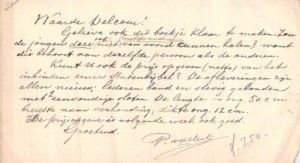 Waarde Delcour!
Gelieve ook dit boekje klaar te maken. Zou
de jongen deze ook van avond kunnen halen? want
die behoort aan dezelfde persoon als de anderen.
Kunt U ook de prijs opgeven (netto) van het
inbinden eener Statenbijbel? De afleveringen zijn
allen nieuw; lederen band en stevig gebonden
met eenvoudige sloten. De lengte is ong. 50 cm
breedte naar verhouding, dikte ong 12 cm.
De prijsopgave is volgende week ook goed.
Groetend.
f 7.50.-